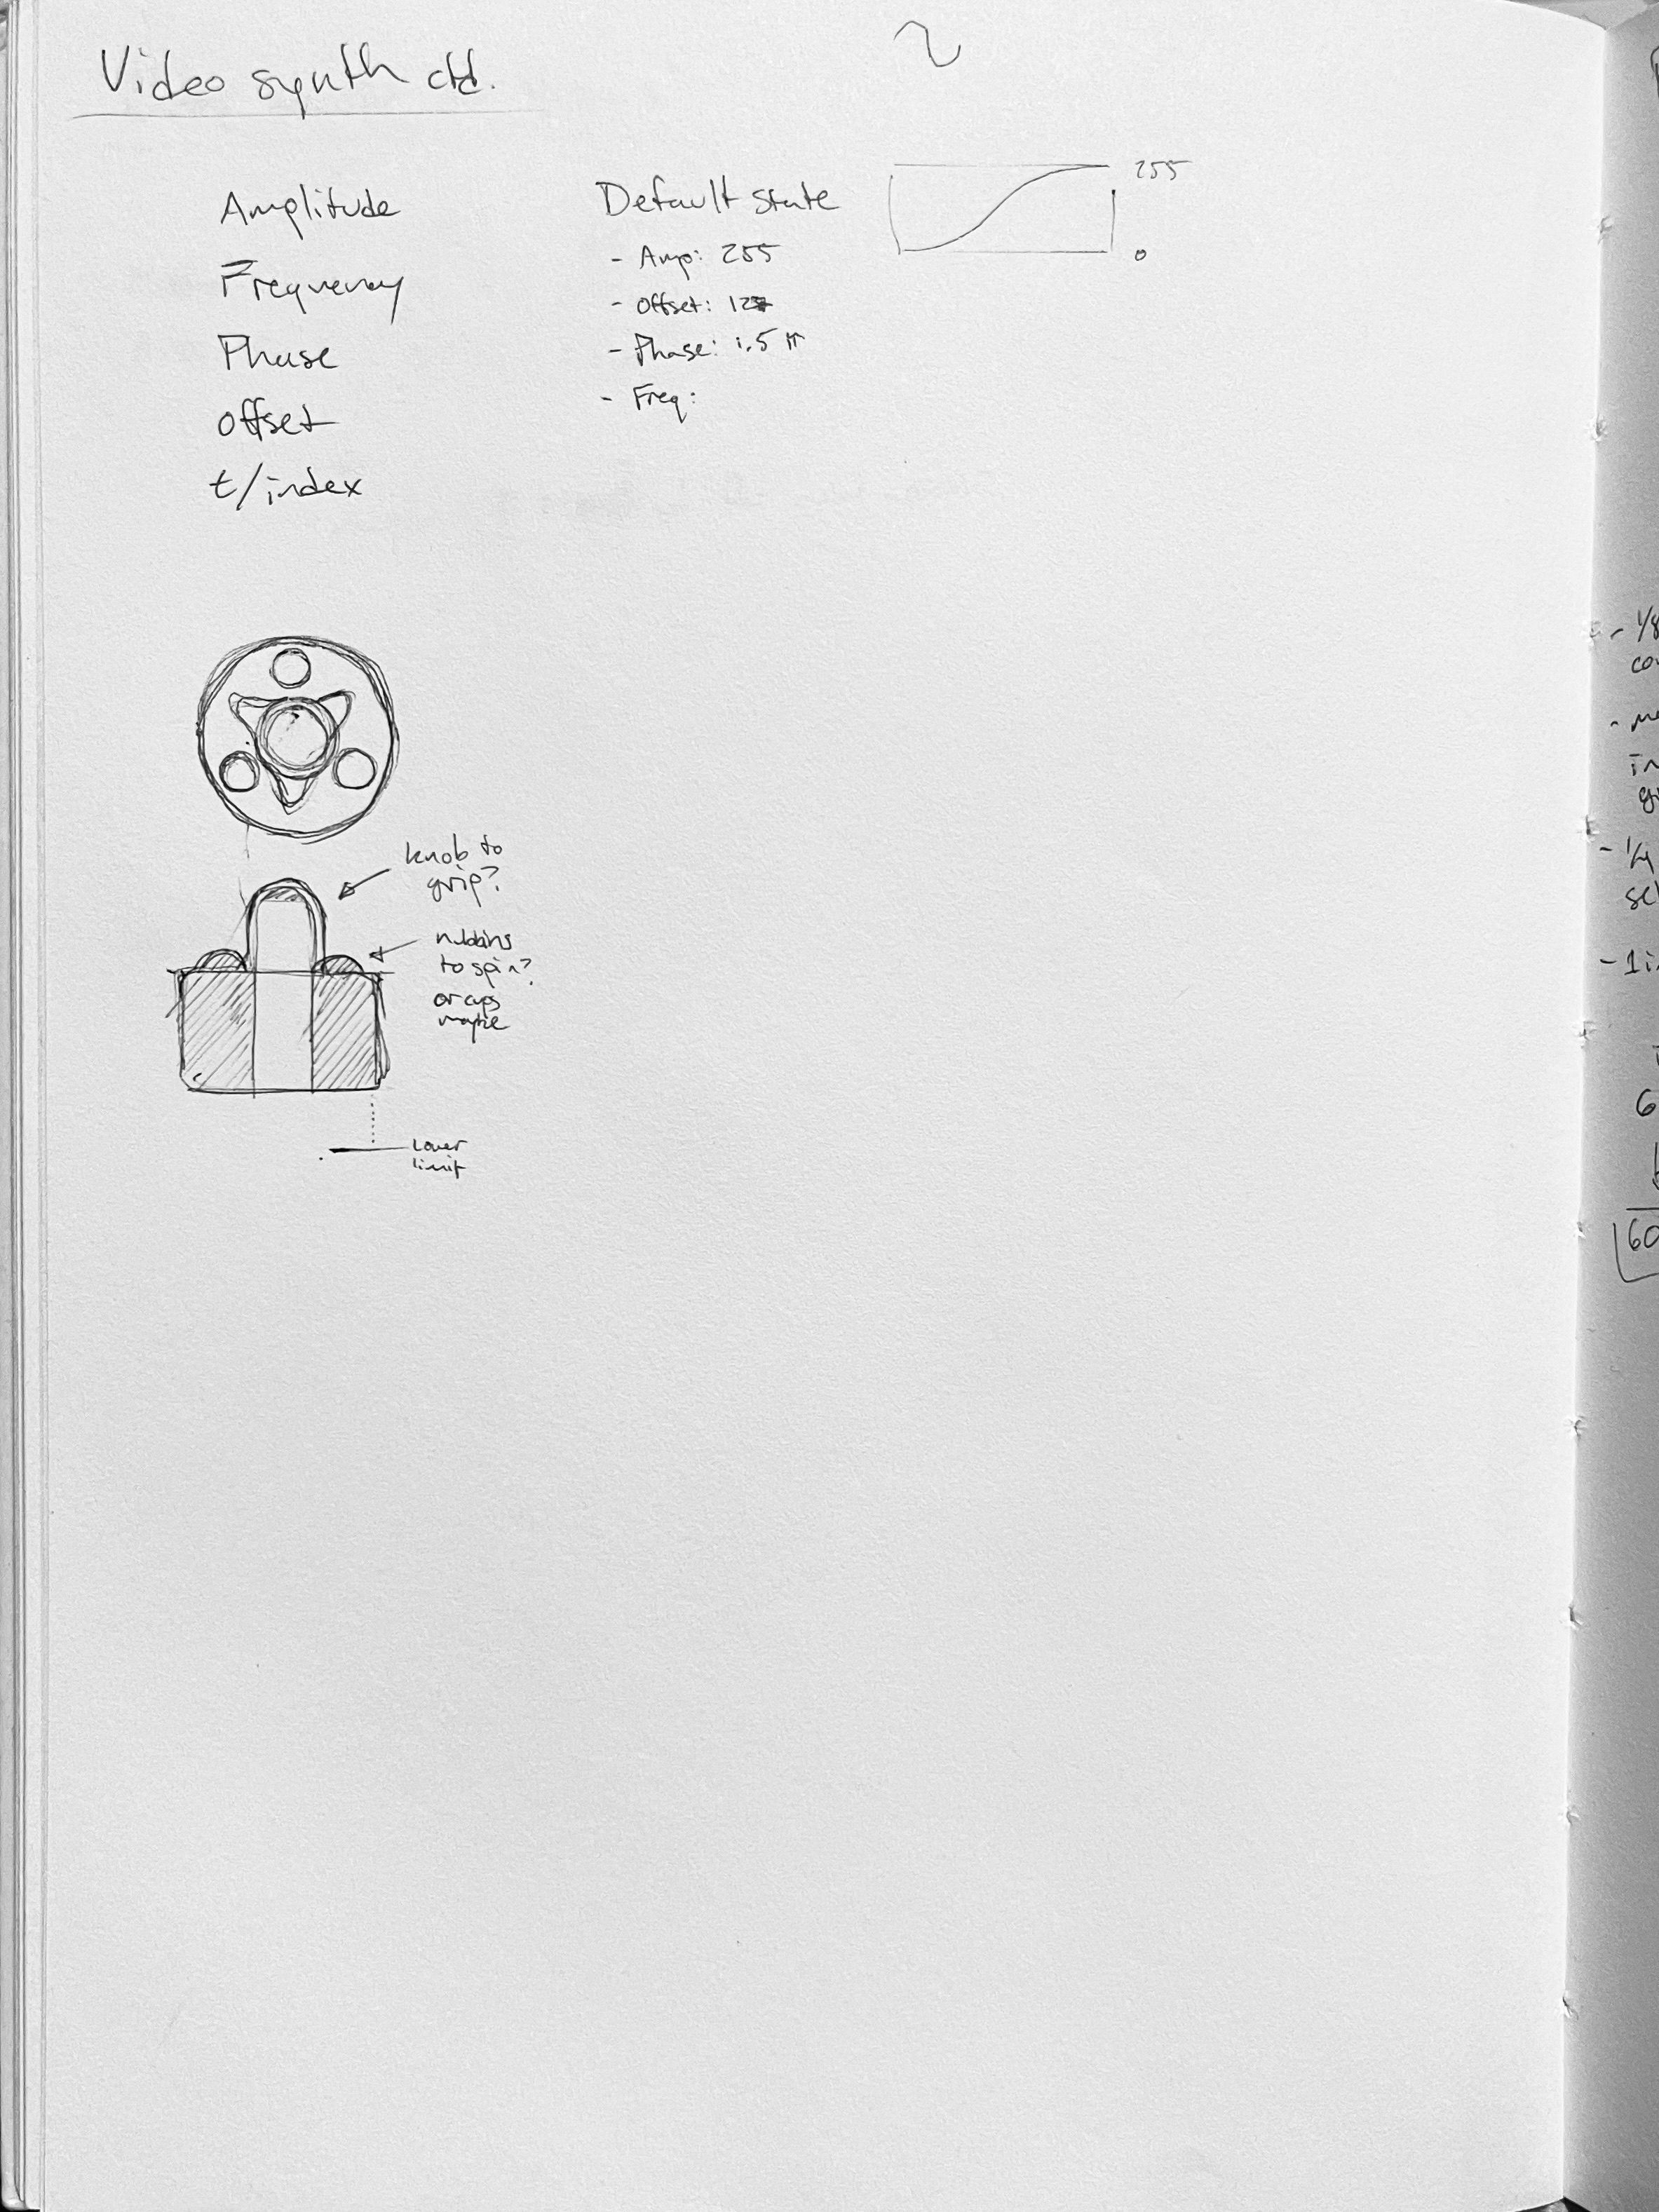 Video synth ctd.
Amplitude
Frequency
Phase
offset
t/index
Default state
- Amp: 255
- offset: 127
- Phase: 1.5 π
- Freq:
255
0
knob to
grip?
nubbins
to spin?
or cups
maybe
lower
limit
- 1/8
- 1/4